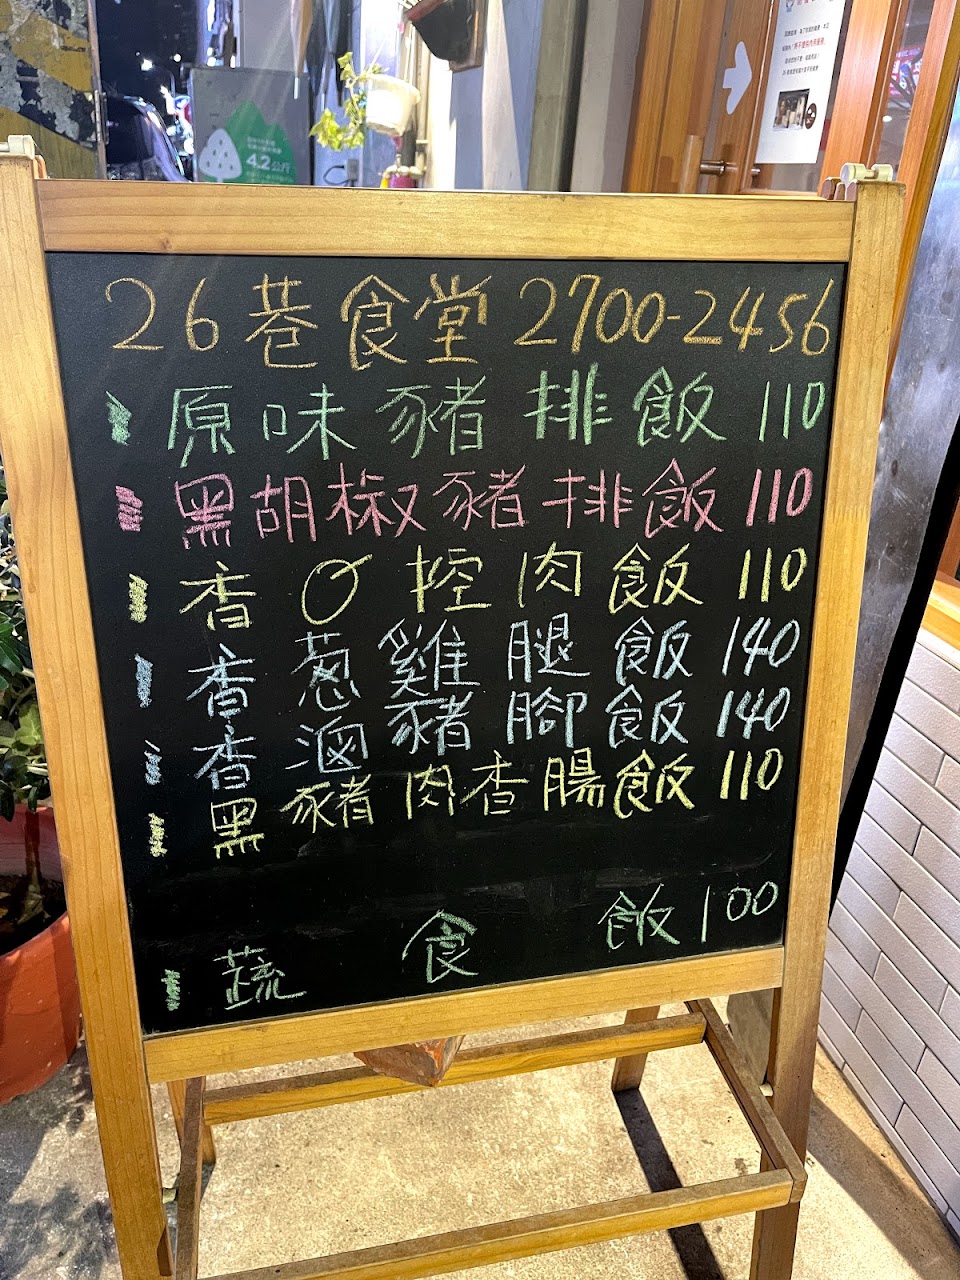 4.2公斤
26巷食堂 2700-2456
原味豬排飯 110
黑胡椒豬排飯 110
香Q控肉飯 110
香蔥雞腿飯 140
香滷豬腳飯 140
黑豬肉香腸飯 110
蔬食飯 100